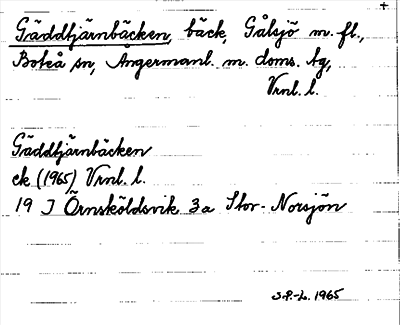 +
Gäddtjärnbäcken, bäck, Gålsjö m. fl.,
Boteå sn, Ångermanl. m. doms. tg,
Vrnl. l.
Gäddtjärnbäcken
ek (1965) Vrnl. l.
19 J Örnsköldsvik 3a Stor-Norsjön
S.P.-L. 1965